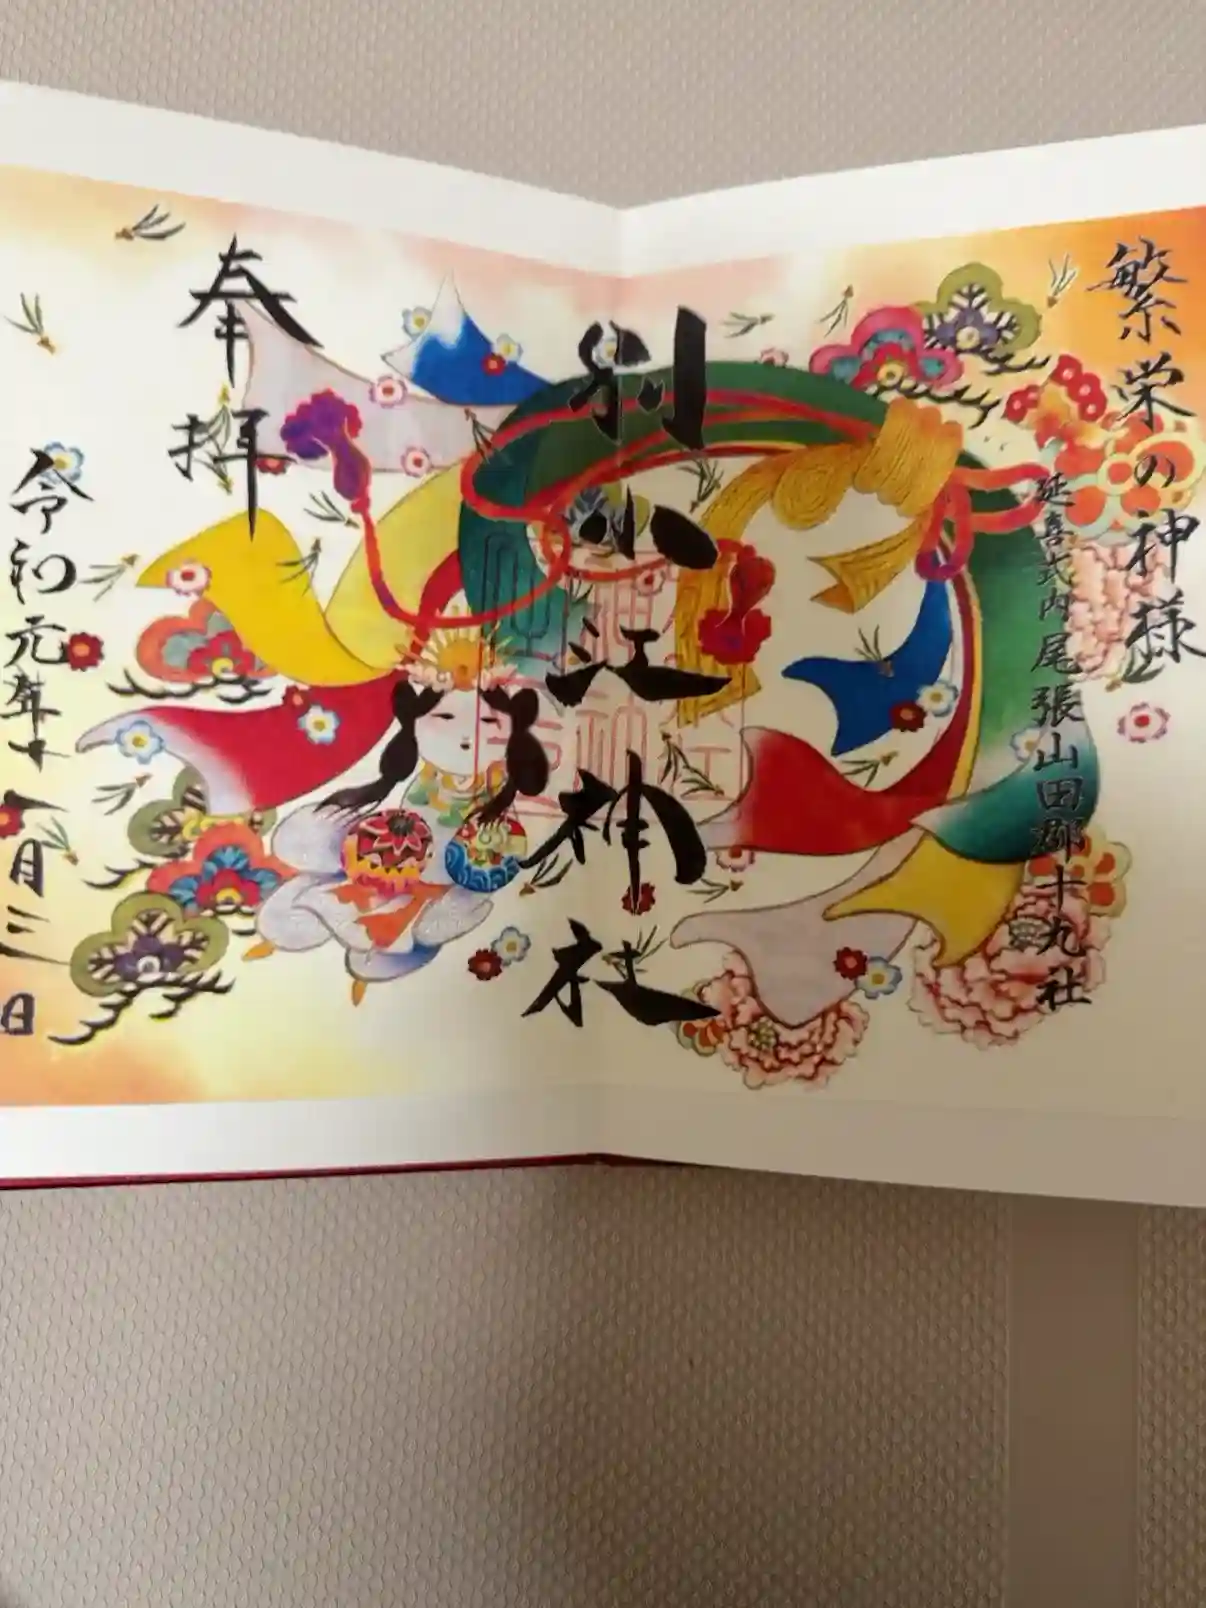 繁栄の神様
延喜式内尾張山田郡十九社
別小江神社
奉拝
令和元年十一月三日